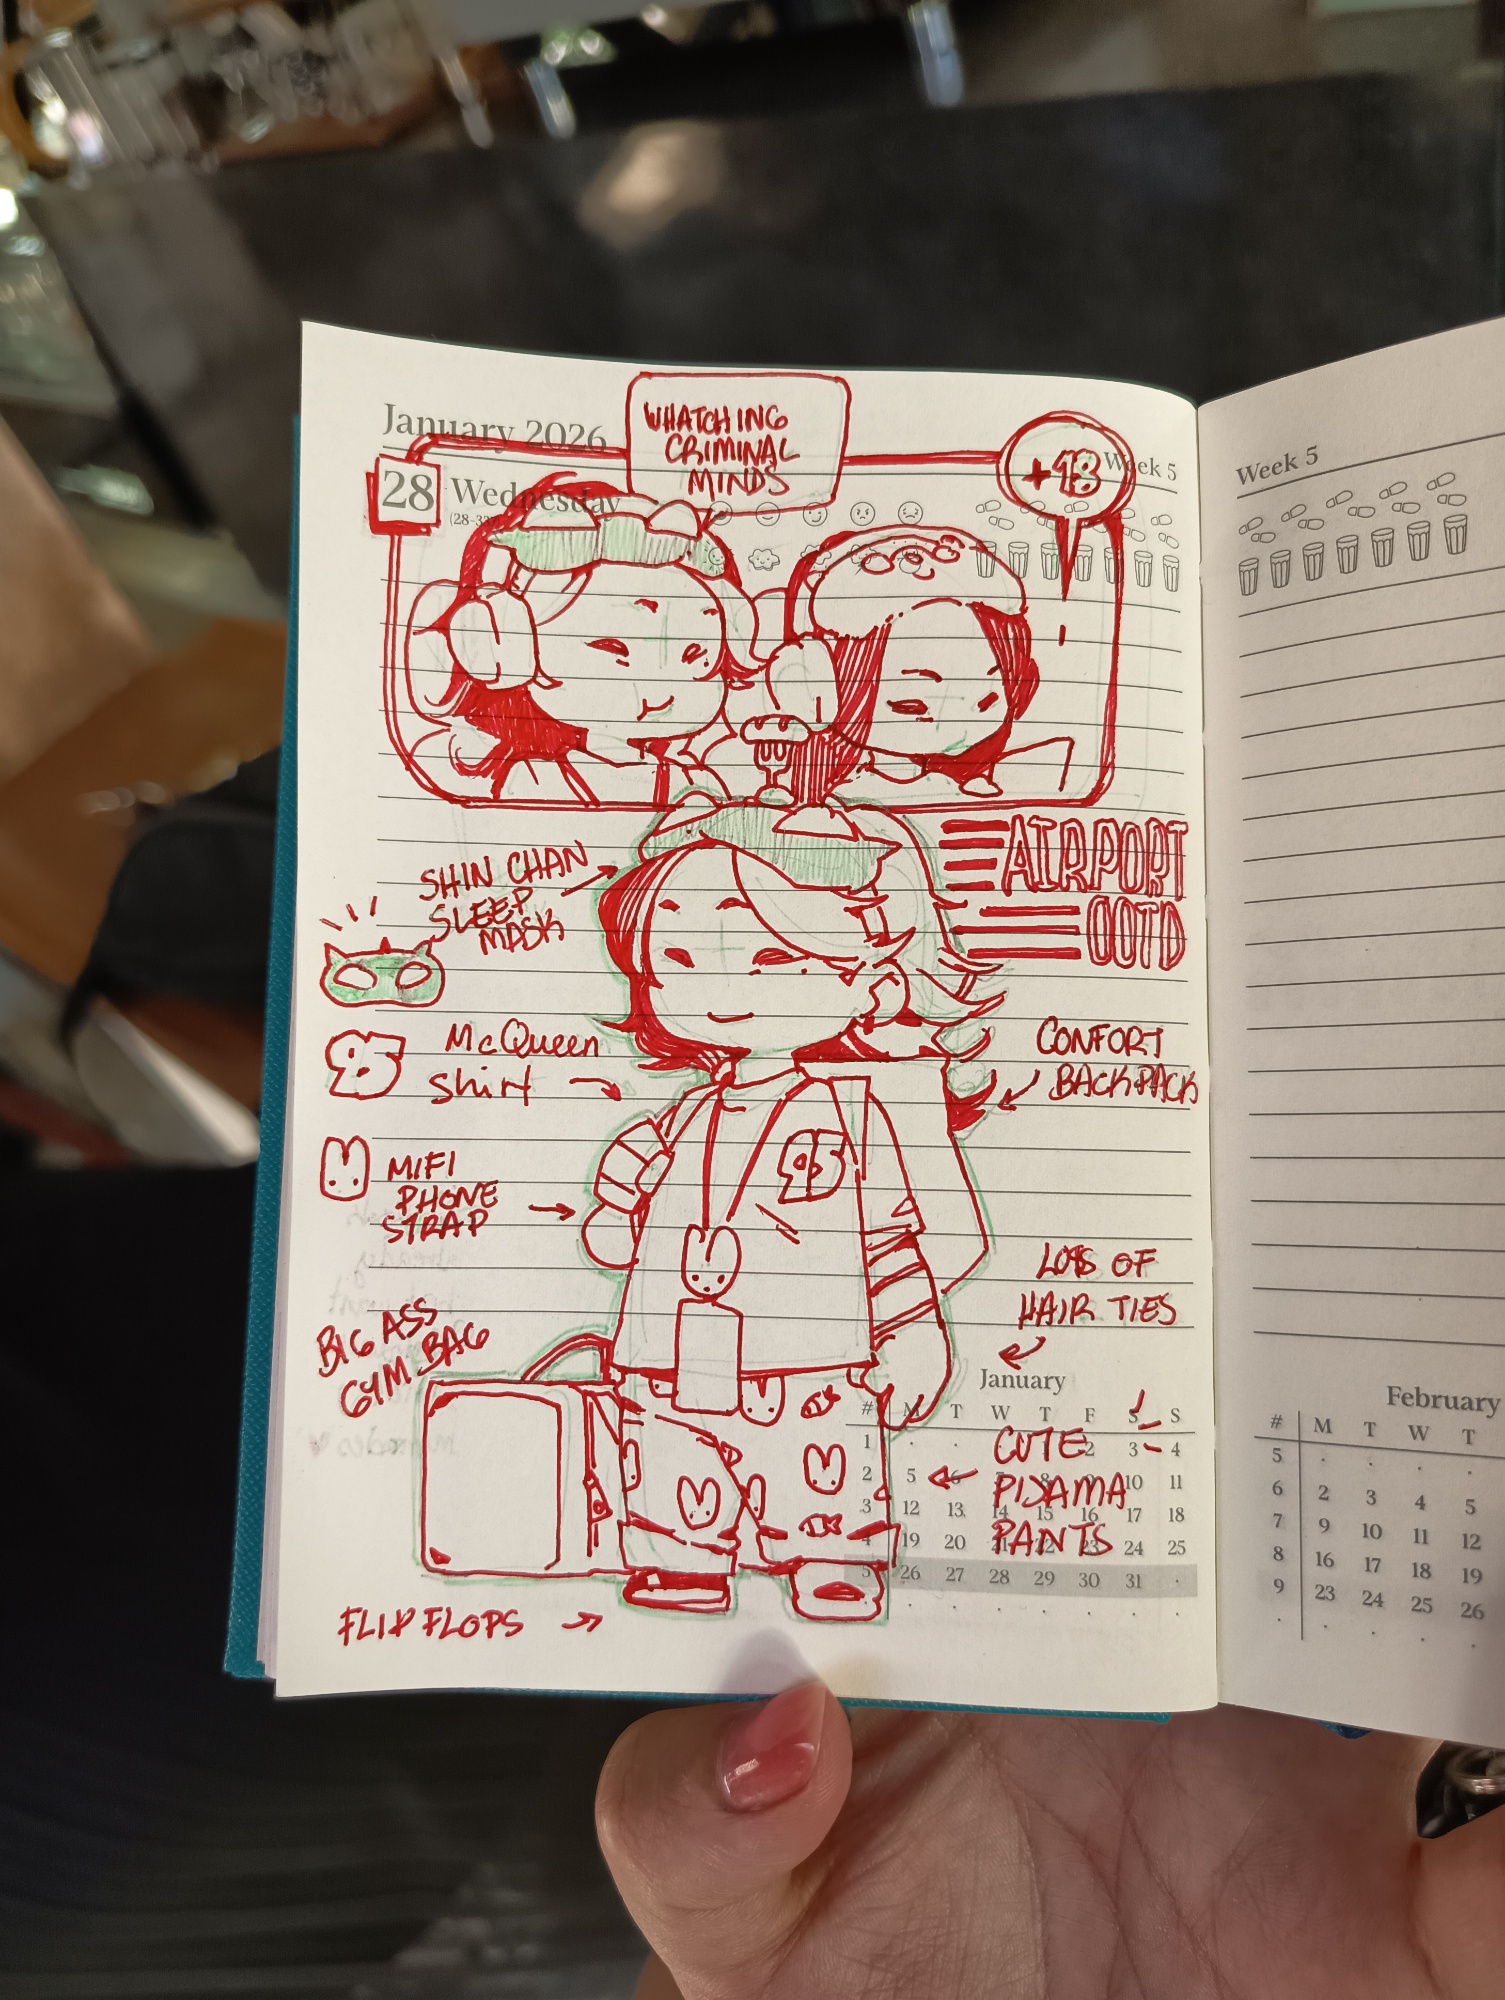 January 2026
WHATCHING
CRIMINAL
MINDS
+18
Week 5
28 Wednesday
AIRPORT
OOTD
SHIN CHAN
SLEEP
MASK
95
McQueen
Shirt
CONFORT
BACKPACK
95
MIFI
PHONE
STRAP
LOTS OF
HAIR TIES
BIG ASS
GYM BAG
CUTE
PIJAMA
PANTS
FLIP FLOPS
January
# M T W T F S S
1 2 3 4
2 5 10 11
3 12 13 14 15 16 17 18
4 19 20 21 22 23 24 25
5 26 27 28 29 30 31
Week 5
February
# M T W T
5
6 2 3 4 5
7 9 10 11 12
8 16 17 18 19
9 23 24 25 26